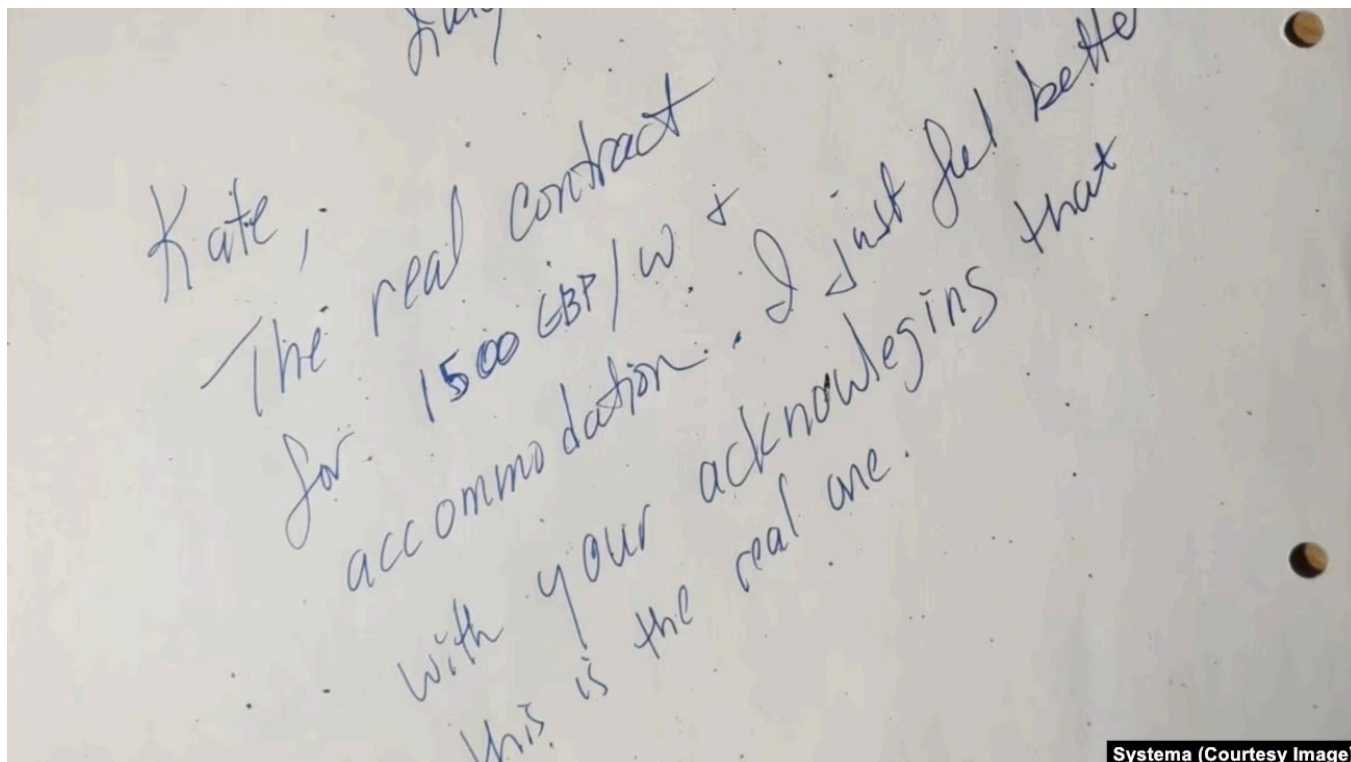 Kate,
The real contract
for 1500 GBP/W +
accommodation. I just feel bette
with your acknowleging that
this is the real one.
Systema (Courtesy Image)